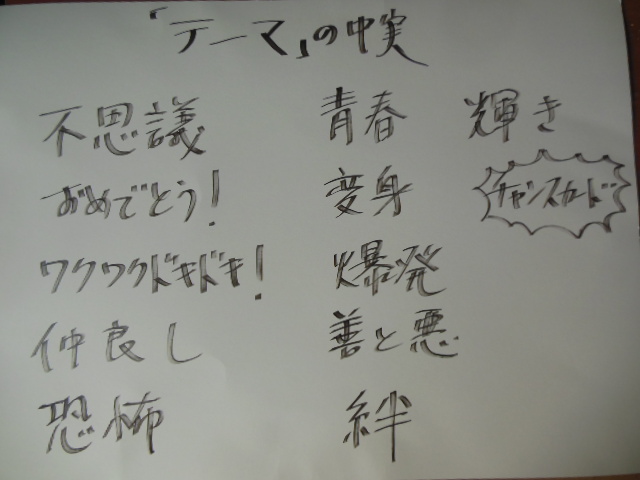 「テーマ」の中実
不思議
おめでとう!
ワクワクドキドキ!
仲良し
恐怖
青春
変身
爆発
善と悪
絆
輝き
チャンスカード